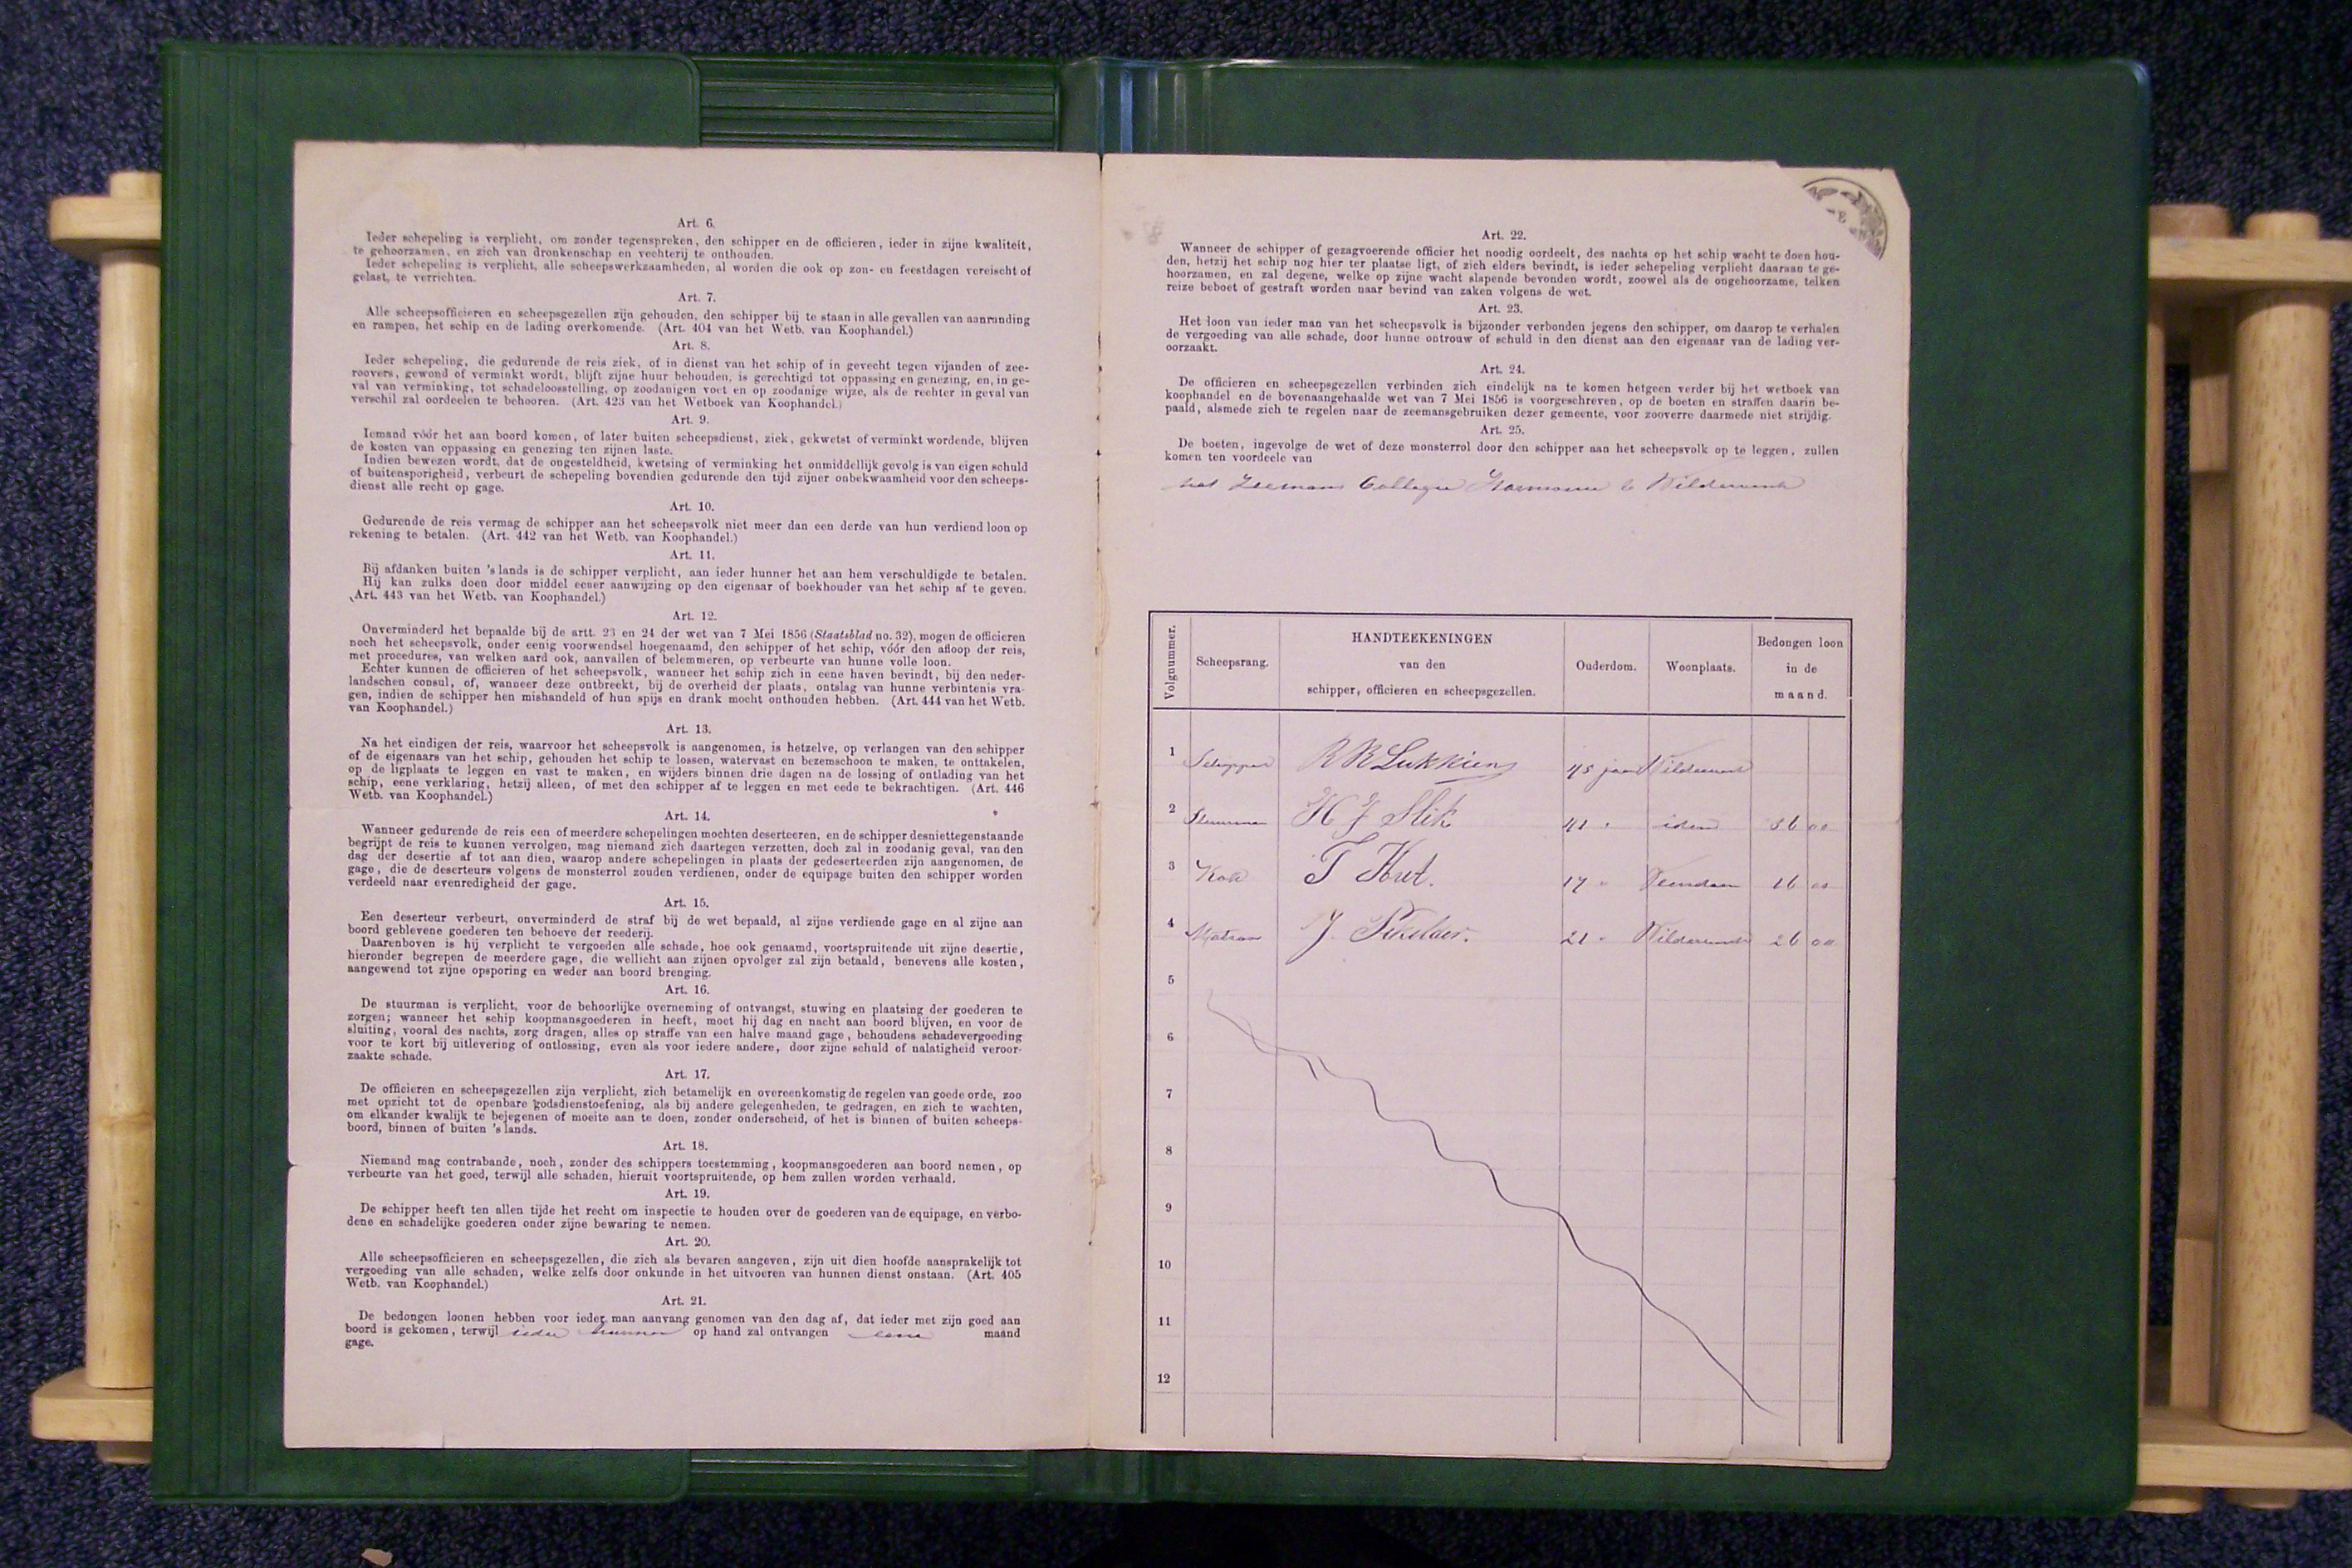 Art. 6.
Ieder schepeling is verplicht, om zonder tegenspreken, den schipper en de officieren, ieder in zijne kwaliteit,
te gehoorzamen, en zich van dronkenschap en vechterij te onthouden.
Ieder schepeling is verplicht, alle scheepswerkzaamheden, al worden die ook op zon- en feestdagen vereischt of
gelast, te verrichten.
Art. 7.
Alle scheepsofficieren en scheepsgezellen zijn gehouden, den schipper bij te staan in alle gevallen van aanranding
en rampen, het schip en de lading overkomende. (Art. 404 van het Wetb. van Koophandel.)
Art. 8.
Ieder schepeling, die gedurende de reis ziek, of in dienst van het schip of in gevecht tegen vijanden of zee-
roovers, gewond of verminkt wordt, blijft zijne huur behouden, is gerechtigd tot oppassing en genezing, en, in ge-
val van verminking, tot schadeloosstelling, op zoodanigen voet en op zoodanige wijze, als de rechter in geval van
verschil zal oordeelen te behooren. (Art. 423 van het Wetboek van Koophandel.)
Art. 9.
Iemand vóór het aan boord komen, of later buiten scheepsdienst, ziek, gekwetst of verminkt wordende, blijven
de kosten van oppassing en genezing ten zijnen laste.
Indien bewezen wordt, dat de ongesteldheid, kwetsing of verminking het onmiddellijk gevolg is van eigen schuld
of buitensporigheid, verbeurt de schepeling bovendien gedurende den tijd zijner onbekwaamheid voor den scheeps-
dienst alle recht op gage.
Art. 10.
Gedurende de reis vermag de schipper aan het scheepsvolk niet meer dan een derde van hun verdiend loon op
rekening te betalen. (Art. 442 van het Wetb. van Koophandel.)
Art. 11.
Bij afdanken buiten 's lands is de schipper verplicht, aan ieder hunner het aan hem verschuldigde te betalen.
Hij kan zulks doen door middel eener aanwijzing op den eigenaar of boekhouder van het schip af te geven.
(Art. 443 van het Wetb. van Koophandel.)
Art. 12.
Onverminderd het bepaalde bij de artt. 23 en 24 der wet van 7 Mei 1856 (Staatsblad no. 32), mogen de officieren
noch het scheepsvolk, onder eenig voorwendsel hoegenaamd, den schipper of het schip, vóór den afloop der reis,
met procedures, van welken aard ook, aanvallen of belemmeren, op verbeurte van hunne volle loon.
Echter kunnen de officieren of het scheepsvolk, wanneer het schip zich in eene haven bevindt, bij den neder-
landschen consul, of, wanneer deze ontbreekt, bij de overheid der plaats, ontslag van hunne verbintenis vra-
gen, indien de schipper hen mishandeld of hun spijs en drank mocht onthouden hebben. (Art. 444 van het Wetb.
van Koophandel.)
Art. 13.
Na het eindigen der reis, waarvoor het scheepsvolk is aangenomen, is hetzelve, op verlangen van den schipper
of de eigenaars van het schip, gehouden het schip te lossen, watervast en bezemschoon te maken, te onttakelen,
op de ligplaats te leggen en vast te maken, en wijders binnen drie dagen na de lossing of ontlading van het
schip, eene verklaring, hetzij alleen, of met den schipper af te leggen en met eede te bekrachtigen. (Art. 446
Wetb. van Koophandel.)
Art. 14.
Wanneer gedurende de reis een of meerdere schepelingen mochten deserteeren, en de schipper desniettegenstaande
begrijpt de reis te kunnen vervolgen, mag niemand zich daartegen verzetten, doch zal in zoodanig geval, van den
dag der desertie af tot aan dien, waarop andere schepelingen in plaats der gedeserteerden zijn aangenomen, de
gage, die de deserteurs volgens de monsterrol zouden verdienen, onder de equipage buiten den schipper worden
verdeeld naar evenredigheid der gage.
Art. 15.
Een deserteur verbeurt, onverminderd de straf bij de wet bepaald, al zijne verdiende gage en al zijne aan
boord geblevene goederen ten behoeve der reederij.
Daarenboven is hij verplicht te vergoeden alle schade, hoe ook genaamd, voortspruitende uit zijne desertie,
hieronder begrepen de meerdere gage, die wellicht aan zijnen opvolger zal zijn betaald, benevens alle kosten,
aangewend tot zijne opsporing en weder aan boord brenging.
Art. 16.
De stuurman is verplicht, voor de behoorlijke overneming of ontvangst, stuwing en plaatsing der goederen te
zorgen; wanneer het schip koopmansgoederen in heeft, moet hij dag en nacht aan boord blijven, en voor de
sluiting, vooral des nachts, zorg dragen, alles op straffe van een halve maand gage, behoudens schadevergoeding
voor te kort bij uitlevering of ontlossing, even als voor iedere andere, door zijne schuld of nalatigheid veroor-
zaakte schade.
Art. 17.
De officieren en scheepsgezellen zijn verplicht, zich betamelijk en overeenkomstig de regelen van goede orde, zoo
met opzicht tot de openbare godsdienstoefening, als bij andere gelegenheden, te gedragen, en zich te wachten,
om elkander kwalijk te bejegenen of moeite aan te doen, zonder onderscheid, of het is binnen of buiten scheeps-
boord, binnen of buiten 's lands.
Art. 18.
Niemand mag contrabande, noch, zonder des schippers toestemming, koopmansgoederen aan boord nemen, op
verbeurte van het goed, terwijl alle schaden, hieruit voortspruitende, op hem zullen worden verhaald.
Art. 19.
De schipper heeft ten allen tijde het recht om inspectie te houden over de goederen van de equipage, en verbo-
dene en schadelijke goederen onder zijne bewaring te nemen.
Art. 20.
Alle scheepsofficieren en scheepsgezellen, die zich als bevaren aangeven, zijn uit dien hoofde aansprakelijk tot
vergoeding van alle schaden, welke zelfs door onkunde in het uitvoeren van hunnen dienst onstaan. (Art. 405
Wetb. van Koophandel.)
Art. 21.
De bedongen loonen hebben voor ieder man aanvang genomen van den dag af, dat ieder met zijn goed aan
boord is gekomen, terwijl ieder hunner op hand zal ontvangen eene maand
gage.
Art. 22.
Wanneer de schipper of gezagvoerende officier het noodig oordeelt, des nachts op het schip wacht te doen hou-
den, hetzij het schip nog hier ter plaatse ligt, of zich elders bevindt, is ieder schepeling verplicht daaraan te ge-
hoorzamen, en zal degene, welke op zijne wacht slapende bevonden wordt, zoowel als de ongehoorzame, telken
reize beboet of gestraft worden naar bevind van zaken volgens de wet.
Art. 23.
Het loon van ieder man van het scheepsvolk is bijzonder verbonden jegens den schipper, om daarop te verhalen
de vergoeding van alle schade, door hunne ontrouw of schuld in den dienst aan den eigenaar van de lading ver-
oorzaakt.
Art. 24.
De officieren en scheepsgezellen verbinden zich eindelijk na te komen hetgeen verder bij het wetboek van
koophandel en de bovenaangehaalde wet van 7 Mei 1856 is voorgeschreven, op de boeten en straffen daarin be-
paald, alsmede zich te regelen naar de zeemansgebruiken dezer gemeente, voor zooverre daarmede niet strijdig.
Art. 25.
De boeten, ingevolge de wet of deze monsterrol door den schipper aan het scheepsvolk op te leggen, zullen
komen ten voordeele van
het Zeemans Collegie Harmonie te Wildervank
Volgnummer. Scheepsrang. HANDTEEKENINGEN van den schipper, officieren en scheepsgezellen. Ouderdom. Woonplaats. Bedongen loon in de maand.
1 Schipper R R Lukkien 45 jaar Wildervank
2 Stuurman H J Slik 41 " idem 36 00
3 Kok T Kret. 17 " Veendam 16 00
4 Matroos J. Pekelder. 21 " Wildervank 26 00
5
6
7
8
9
10
11
12